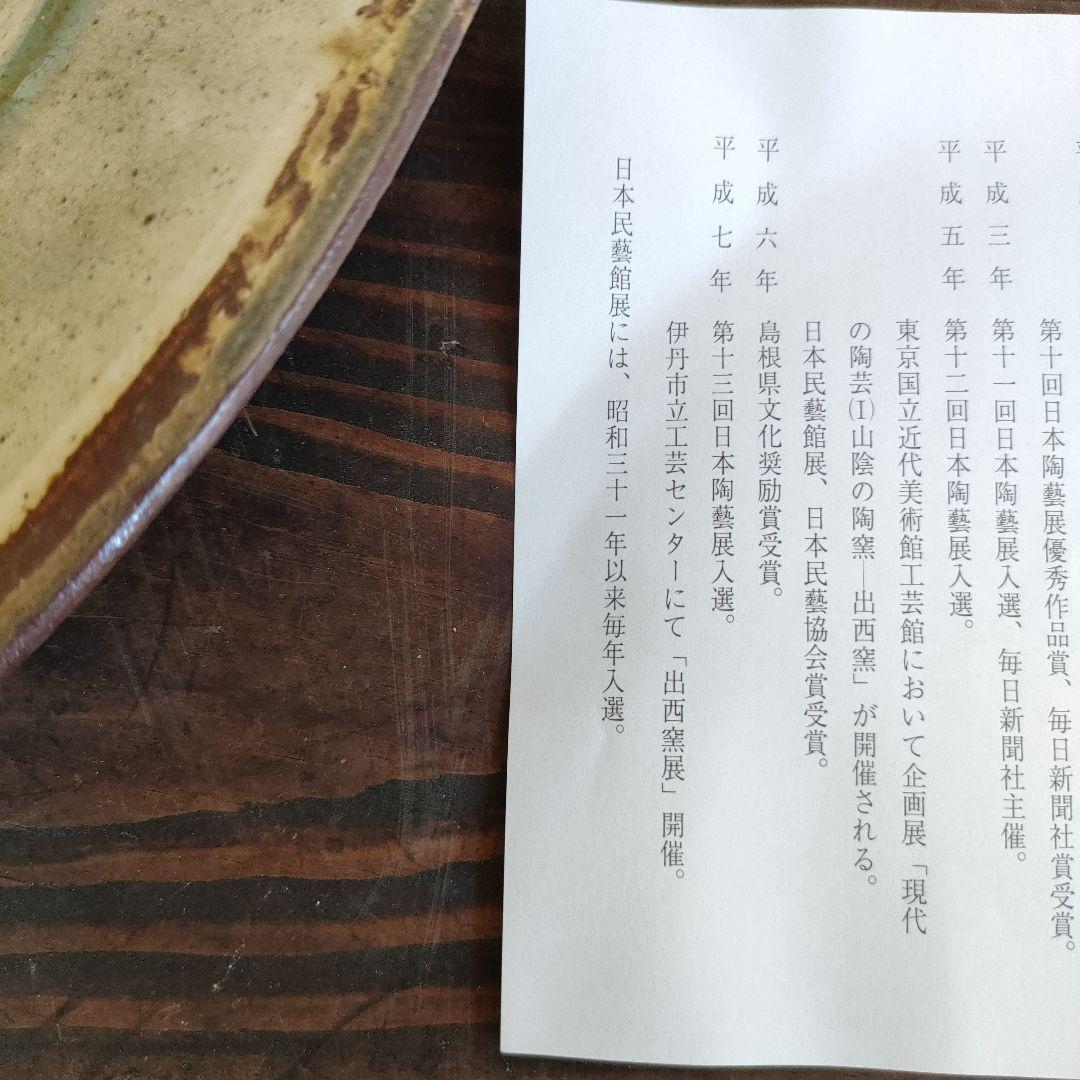 第十回日本陶藝展優秀作品賞、毎日新聞社賞受賞。
平成三年 第十一回日本陶藝展入選、毎日新聞社主催。
平成五年 第十二回日本陶藝展入選。
東京国立近代美術館工芸館において企画展「現代
の陶芸(I)山陰の陶窯―出西窯」が開催される。
日本民藝館展、日本民藝協会賞受賞。
平成六年 島根県文化奨励賞受賞。
平成七年 第十三回日本陶藝展入選。
伊丹市立工芸センターにて「出西窯展」開催。
日本民藝館展には、昭和三十一年以来毎年入選。